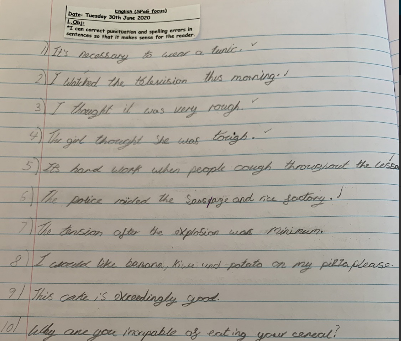 English (SPaG focus)
Date: Tuesday 30th June 2020
L.Obj:
I can correct punctuation and spelling errors in
sentences so that it makes sense for the reader
1) It's necessary to wear a tunic. ✓
2) I watched the television this morning. ✓
3) I thought it was very rough. ✓
4) The girl thought she was tough. ✓
5) It's hard work when people cough throughout the
6) The police raided the sausage and rice factory. ✓
7) The tension after the explosion was minimum.
8) I would like banana, kiwi and potato on my pizza, please.
9) This cake is exceedingly good.
10) Why are you incapable of eating your cereal?